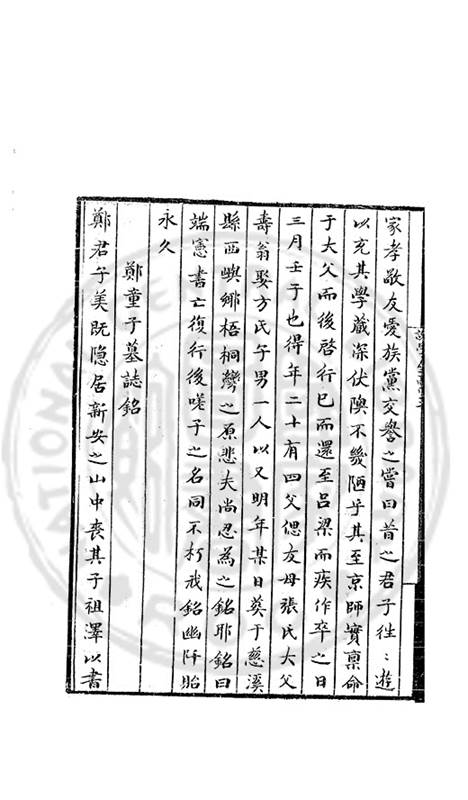 家孝敬友愛族黨交譽之嘗曰昔之君子往〻遊
以充其學藏深伏隩不幾陋乎其至京師實稟命
于大父而後啓行已而還至呂梁而疾作卒之日
三月壬子也得年二十有四父偲友母張氏大父
壽翁娶方氏子男一人以又明年某日葬于慈溪
縣西嶼鄉梧桐灣之原悲夫尚忍為之銘耶銘曰
端憲書亡復行後嗟子之名同不朽我銘幽阡貽
永久
鄭童子墓誌銘
鄭君子美既隱居新安之山中喪其子祖澤以書